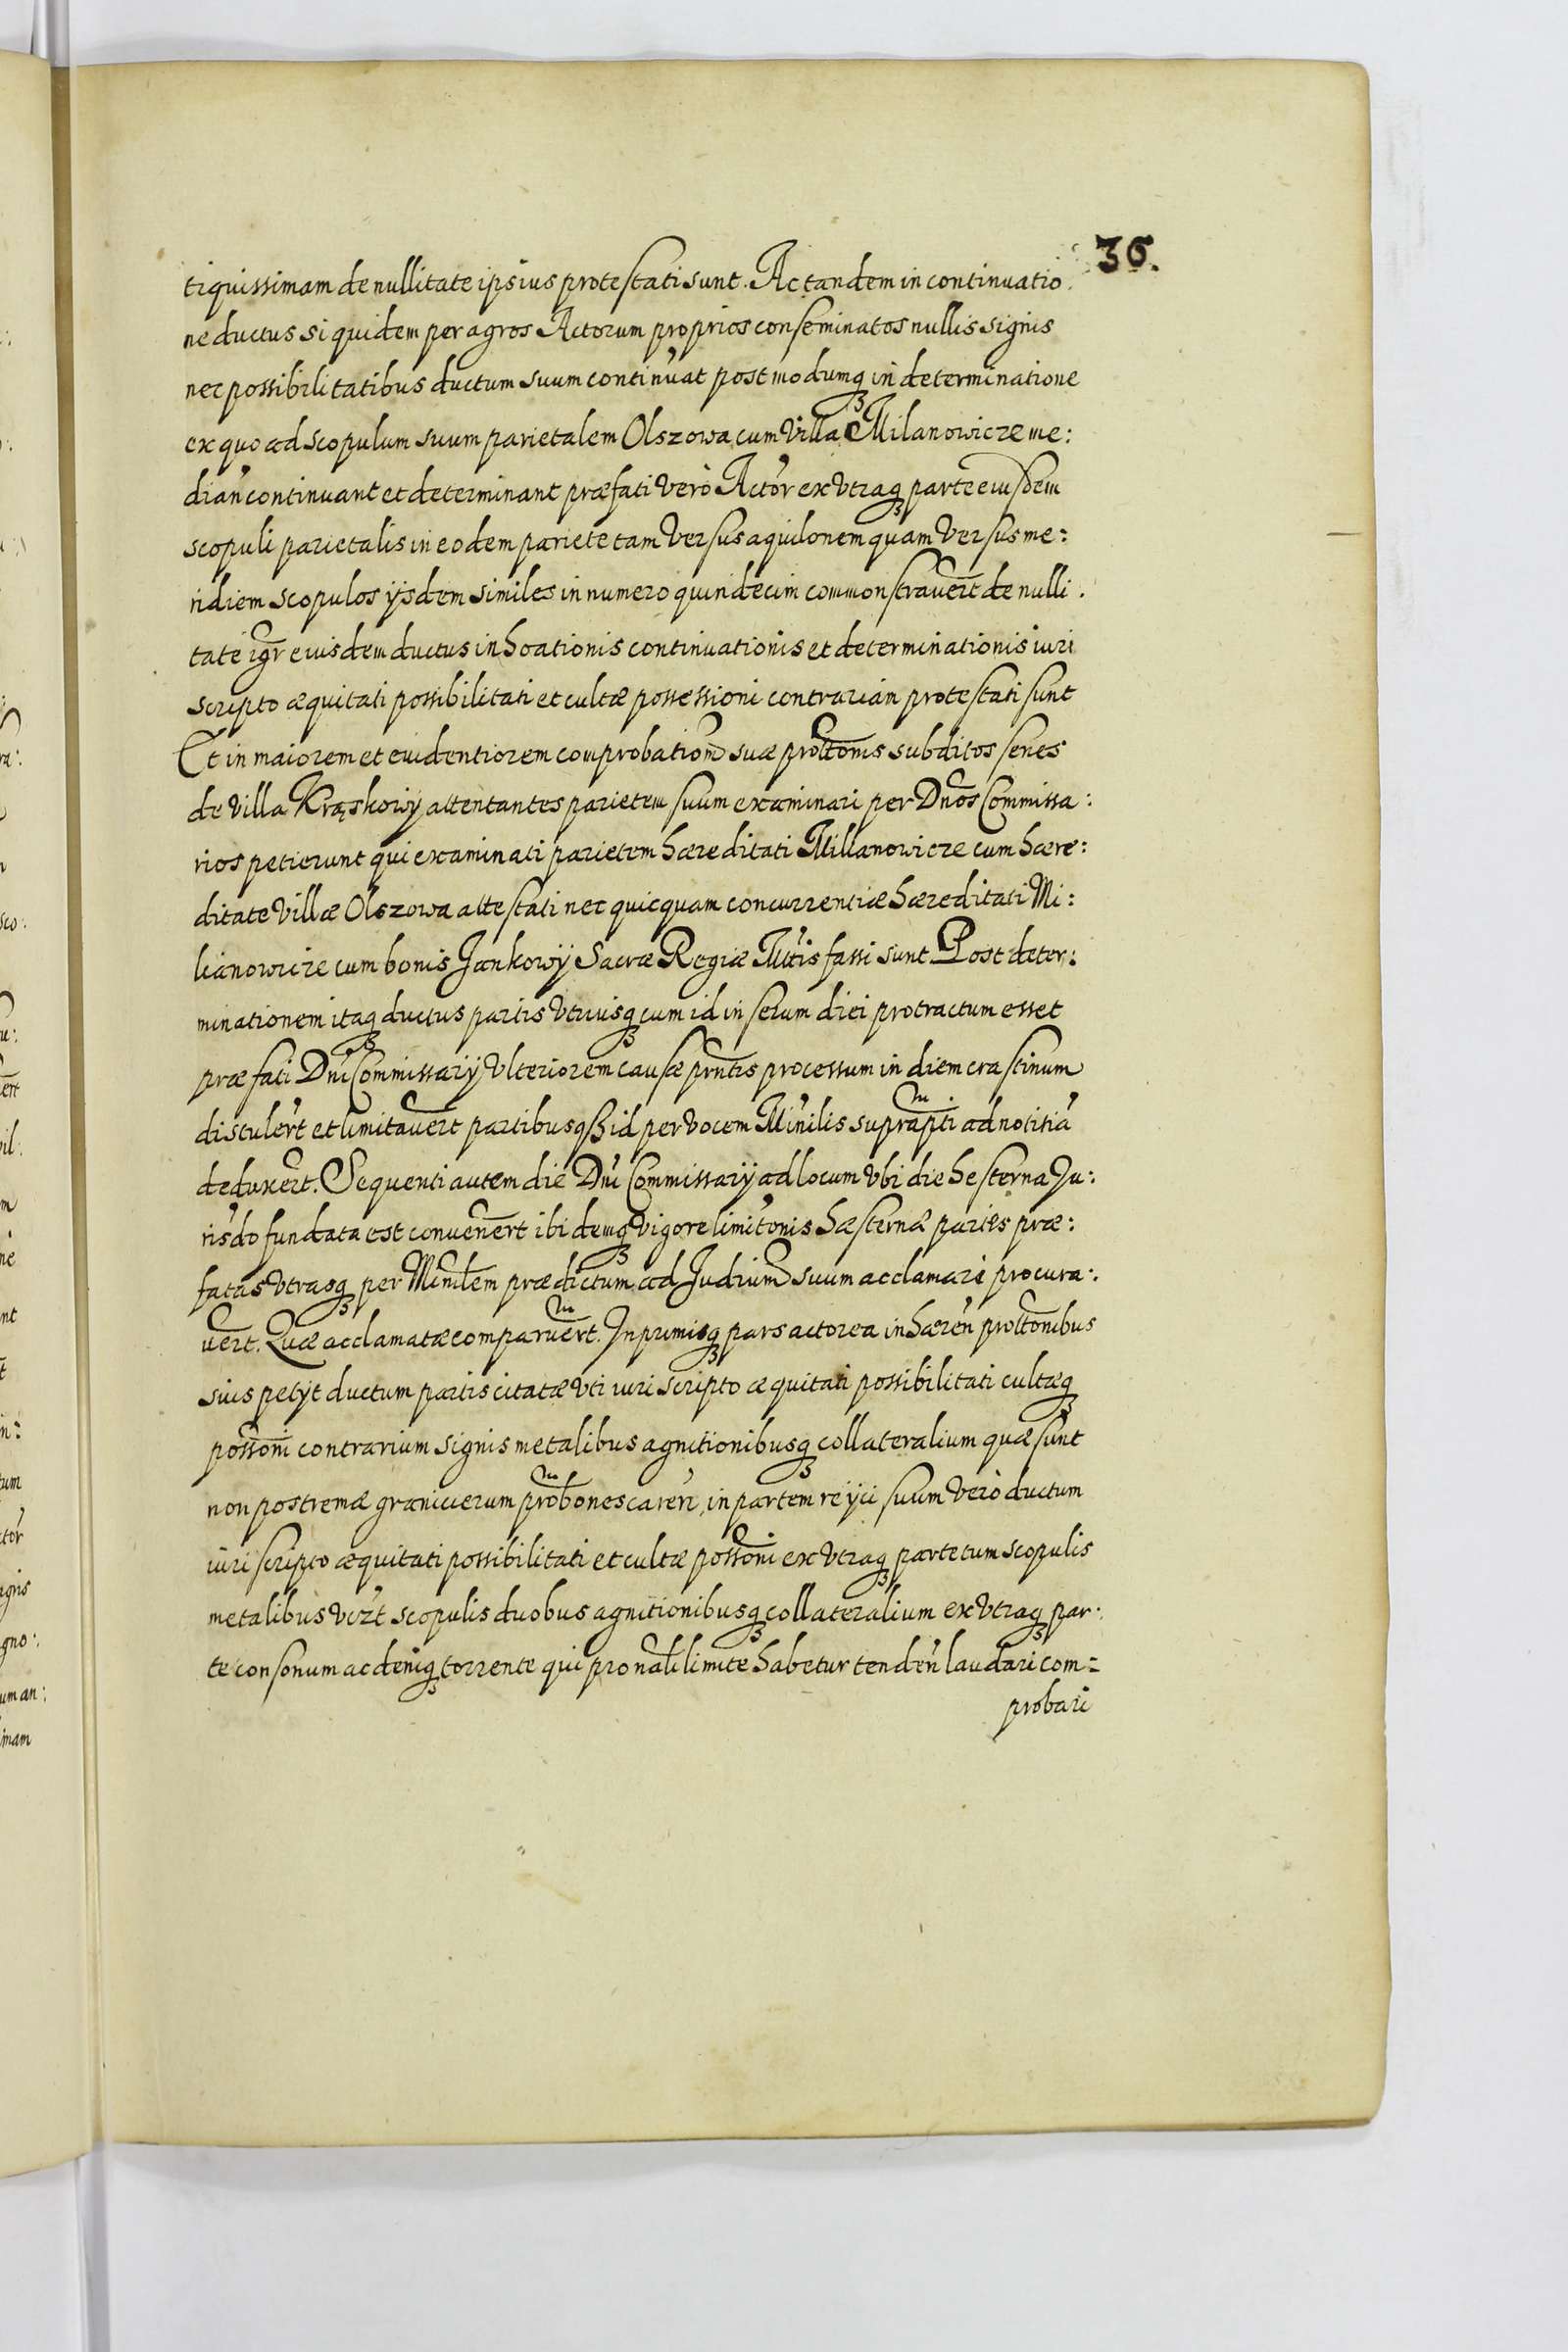 36.
tiquissimam de nullitate ipsius protestati sunt. Ac tandem in continuatio.
ne ductus siquidem per agros Actorum proprios conseminatos nullis signis
nec possibilitatibus ductum suum continuat post modumq in determinatione
ex quo ad scopulum suum parietalem Olszowa cum Villa Milanowicze me:
dian continuant et determinant præfati verò Actor ex vtraq parte eiusdem
scopuli parietalis in eodem pariete tam versus aquilonem quam versus me:
ridiem scopulos ÿsdem similes in numero quindecim commonstravert de nulli.
tate igr eiusdem ductus inhoationis continuationis et determinationis iuri
scripto æquitati possibilitati et cultæ possessioni contrariam protestati sunt
Et in maiorem et euidentiorem comprobatiom suæ prottonis subditos senes
de villa Krąskowÿ attentantes parietem suum examinari per Dnos Commissa:
rios petierunt qui examinati parietem hæreditati Millanowicze cum hære:
ditate Villæ Olszowa attestati nec quicquam concurrentiæ hæreditati Mi:
lianowicze cum bonis Jankowÿ Sacræ Regiæ Mttis fassi sunt Post deter:
minationem itaq ductus partis vtriusq cum id in serum diei protractum esset
præfati Dni Commissarÿ vlteriorem causæ prntis processum in diem crastinum
distulert et limitavert partibusq id per vocem Minilis suprapti ad notitia
deduxert. Sequenti autem die Dni Commissarÿ ad locum vbi die hesterna Ju:
risdo fundata est convenert ibidemq vigore limitonis hæsternæ partes præ:
fatas vtrasq per Minilem prædictum ad Judium suum acclamari procura:
vert. Quæ acclamatæ comparuert. Inprimisq pars actorea inhæren prottonibus
suis petÿt ductum partis citatæ vti iuri scripto æquitati possibilitati cultæq
possoni contrarium signis metalibus agnitionibusq collateralium quæ sunt
non postremæ granicierum probones caren, in partem reÿci suum verò ductum
iuri scripto æquitati possibilitati et cultæ possoni ex vtraq parte tum scopulis
metalibus vizt scopulis duobus agnitionibusq collateralium ex vtraq par:
te consonum ac deniq torrente qui pro nali limite habetur tenden laudari com:
probari